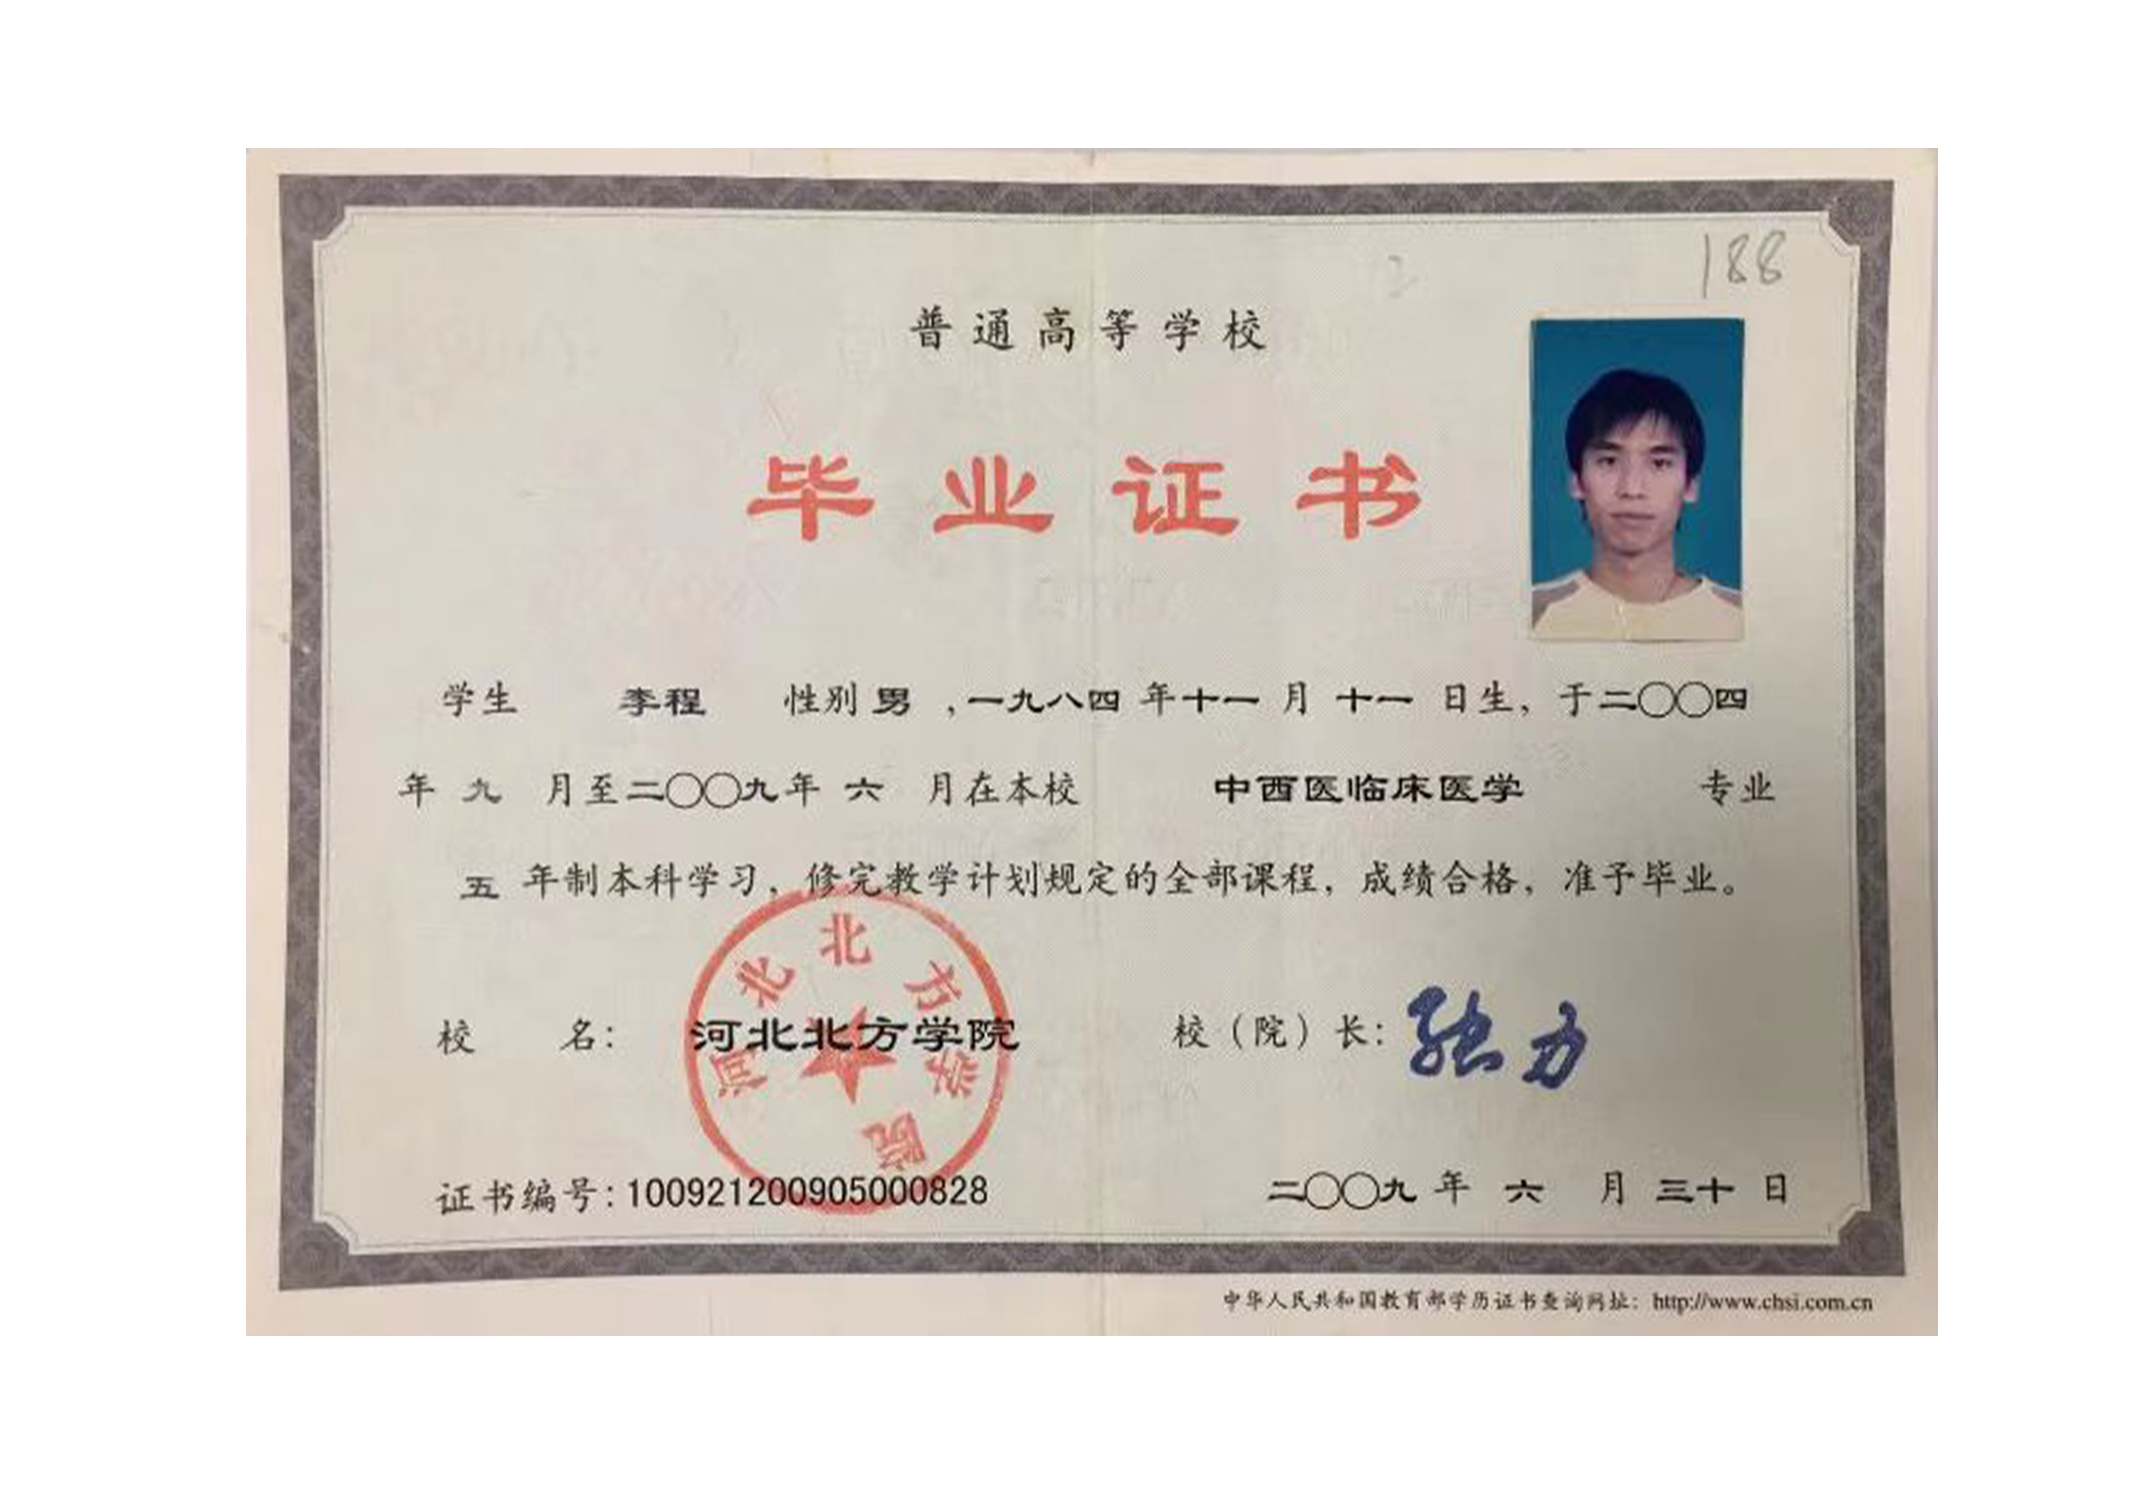 188
2
普通高等学校
毕业证书
学生 李程 性别 男 ，一九八四 年 十一 月 十一 日生，于二〇〇四
年 九 月至二〇〇九年 六 月在本校 中西医临床医学 专业
五 年制本科学习，修完教学计划规定的全部课程，成绩合格，准予毕业。
校 名： 河北北方学院 校（院）长：张力
河北北方学院
证书编号：100921200905000828 二〇〇九 年 六 月 三十 日
中华人民共和国教育部学历证书查询网址：http://www.chsi.com.cn